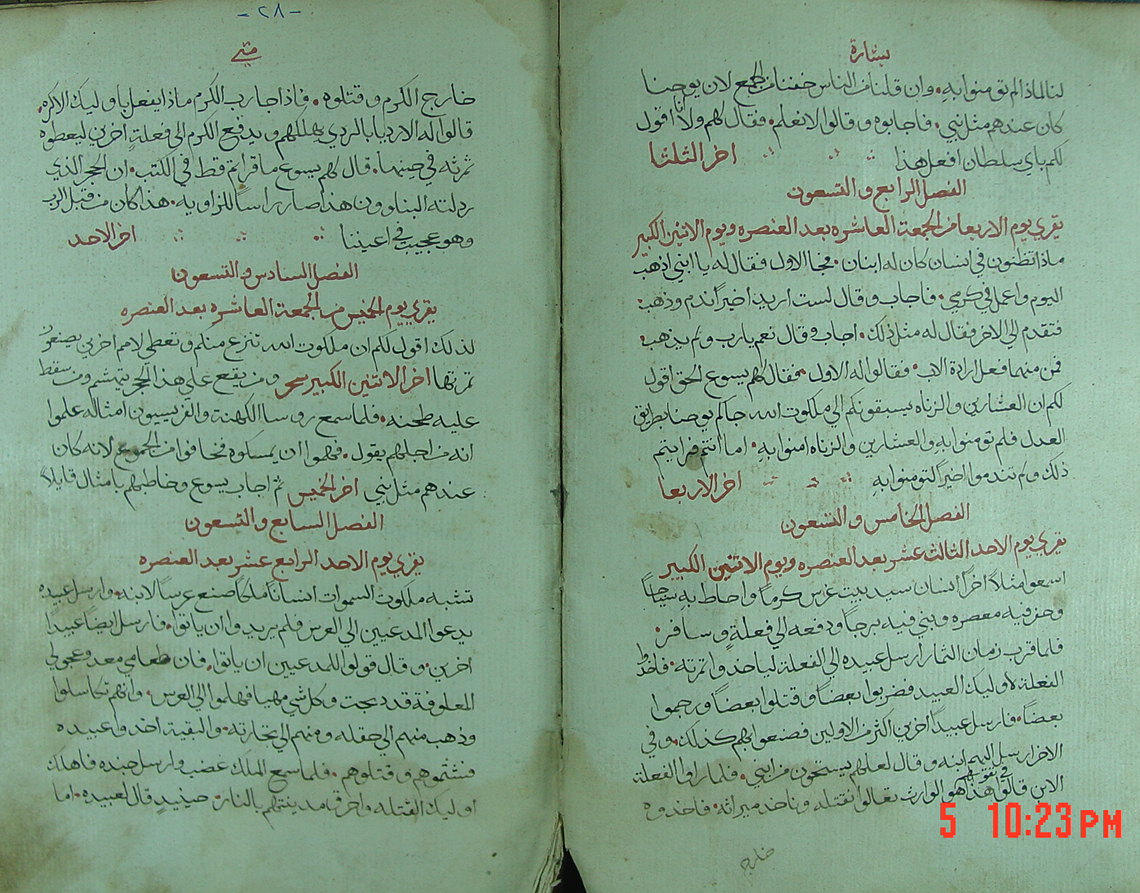 بشارة
لنا لماذا لم تومنوا به وان قلنا من الناس خفنا من الجمع لان يوحنا
كان عندهم مثل نبي فاجابوه وقالوا لا نعلم فقال لهم ولا انا اقول
لكم باي سلطان افعل هذا اخر الثلثا
الفصل الرابع والتسعون
يقرى يوم الاربعا من الجمعة العاشره بعد العنصره ويوم الاثنين الكبير
ماذا تظنون في انسان كان له ابنان فجا الاول فقال له يا ابني اذهب
اليوم واعمل في كرمي فاجاب وقال لست اريد اخيراً ندم وذهب
فتقدم الى الاخر فقال له مثل ذلك اجاب وقال نعم يارب ولم يذهب
فمن منهما فعل ارادة الاب فقالوا له الاول فقال لهم يسوع الحق اقول
لكم ان العشارين والزناه يسبقونكم الى ملكوت الله جاكم يوحنا بطريق
العدل فلم تومنوا به والعشارين والزناه امنوا به اما انتم فرايتم
ذلك ولم تندموا اخيراً لتومنوا به اخر الاربعا
الفصل الخامس والتسعون
يقرى يوم الاحد الثالث عشر بعد العنصره ويوم الاثنين الكبير
اسمعوا مثلاً اخراً انسان سيد بيت غرس كرماً واحاط به سياجاً
وحفر فيه معصره وبنى فيه برجاً ودفعه الى فعلةٍ وسافر
فلما قرب زمان الثمار ارسل عبيده الى الفعلة لياخذوا ثمرته فاخذوا
الفعلة لاوليك العبيد فضربوا بعضاً وقتلوا بعضاً ورجموا
بعضاً فارسل عبيداً اخرين اكثر من الاولين فصنعوا بهم كذلك وفي
الاخر ارسل اليهم ابنه وقال لعلهم يستحون من ابني فلما راوا الفعلة
الابن قالوا في نفوسهم هذا هو الوارث تعالوا نقتله وناخذ ميراثه فاخذوه
خارج
-٢٨-
متى
خارج الكرم وقتلوه فاذا جا رب الكرم ماذا يفعل باوليك الاكره
قالوا له الاردياء بالردي يهلكهم ويدفع الكرم الى فعلةٍ اخرين ليعطوه
ثمرته في حينها قال لهم يسوع ما قراتم قط في الكتب ان الحجر الذي
رذلته البناوون هذا صار راساً للزاويه هذا كان من قبل الرب
وهو عجيب في اعيننا اخر الاحد
الفصل السادس والتسعون
يقرى يوم الخميس من الجمعة العاشره بعد العنصره
لذلك اقول لكم ان ملكوت الله تنزع منكم وتعطى لامم اخرين يصنعون
ثمرتها اخر الاثنين الكبير سحر ومن يقع على هذا الحجر يتهشم ومن سقط
عليه طحنه فلما سمع روسا الكهنة والفريسيون امثاله علموا
انه من اجلهم يقول فهموا ان يمسكوه فخافوا من الجموع لانه كان
عندهم مثل نبي اخر الخميس ثم اجاب يسوع وخاطبهم بامثال قايلاً
الفصل السابع والتسعون
يقرى يوم الاحد الرابع عشر بعد العنصره
تشبه ملكوت السموات انساناً ملكاً صنع عرساً لابنه وارسل عبيده
يدعوا المدعيين الى العرس فلم يريدوا ان ياتوا فارسل ايضاً عبيداً
اخرين وقال قولوا للمدعيين ان ياتوا فان طعامي معد وعجولي
المعلوفة قد دبحت وكل شي مهيا فهلموا الى العرس وانهم تكاسلوا
وذهب منهم الى حقله ومنهم الى تجارته والبقية اخدوا عبيده
فشتموهم وقتلوهم فلما سمع الملك غضب وارسل جنده فاهلك
اوليك القتله واحرق مدينتهم بالنار حينيد قال لعبيده اما
5 10:23 PM